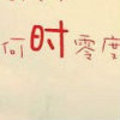 何时零度